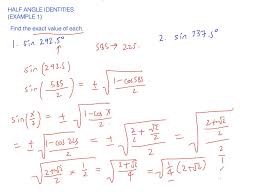 HALF ANGLE IDENTITIES
(EXAMPLE 1)
Find the exact value of each.
1. sin 292.5° 585 → 225. 2. sin 337.5°
sin (292.5)
sin (585/2) = ± √((1-cos 585)/2)
sin (x/2) = ± √((1-cos x)/2)
= ± √((1-cos 225)/2) = ± √((2/2 + √2/2)/2) = √(((2+√2)/2)/2)
√((2+√2)/2 × 1/2) = √((2+√2)/4) = √(1/4 (2+√2))